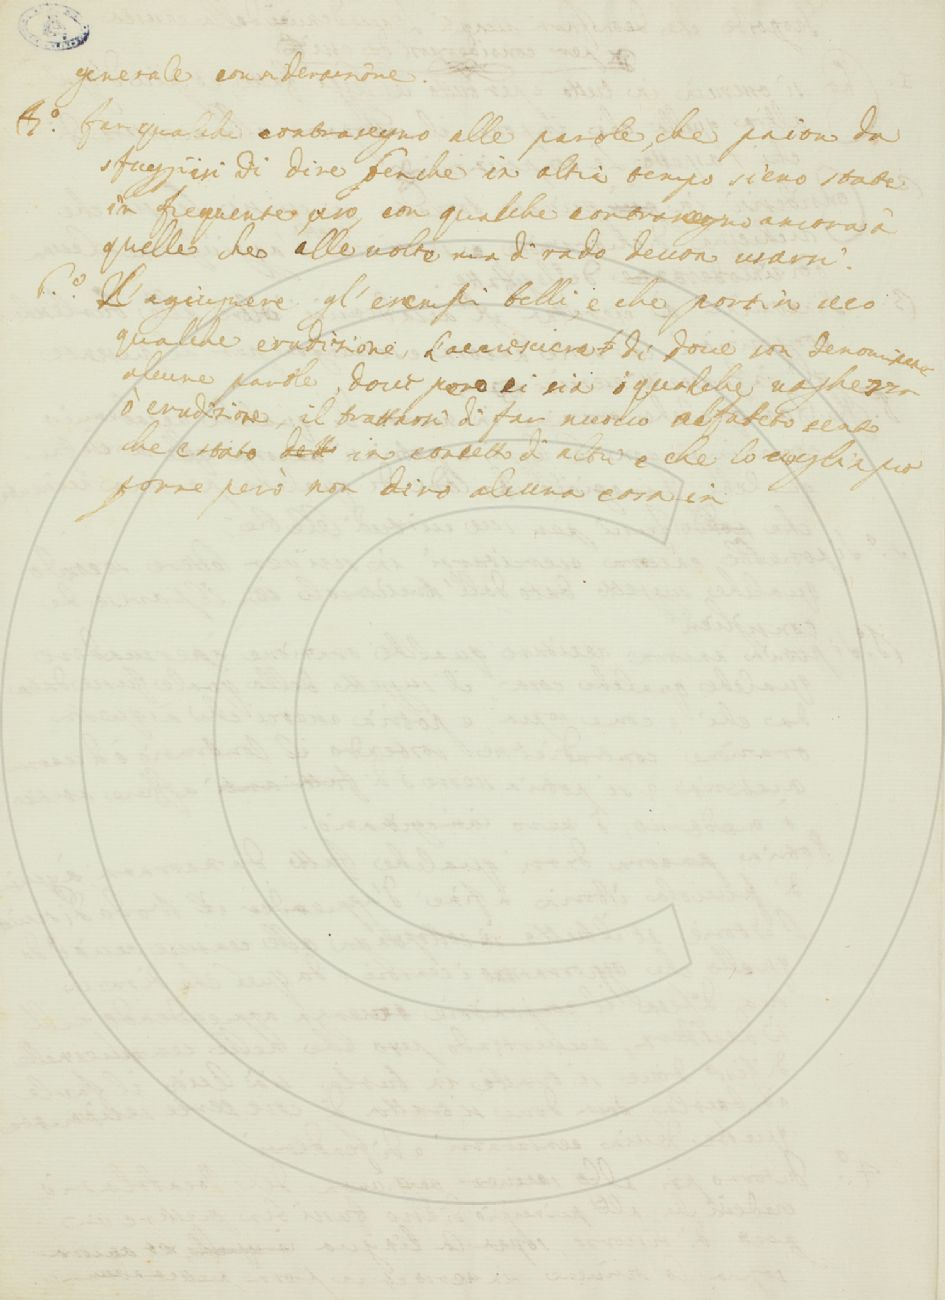 generale considerazione.
4.º far qualche contrasegno alle parole, che paion da
sfuggirsi di dire benche in altri tempo sieno state
in frequente uso, con qualche contrasegno ancora à
quelle che alle volte ma di rado devon usarsi.
L'agiugnere gl'esempi belli, e che portin seco
qualche erudizione, l'accrescere di dove son denominate
alcune parole, dove però ci sia qualche vaghezza
ò erudizione, il trattarsi di far nuovo alfabeto
che è stato in di altri e che lo
porre però non dirò alcuna cosa in